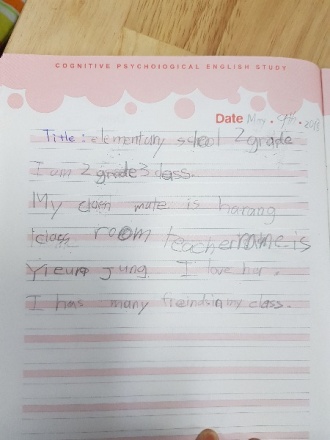 COGNITIVE PSYCHOLOGICAL ENGLISH STUDY
Date May . 9th . 
Title : elementary school 2 grade
I am 2 grade 3 class.
My mate is harang
class room teacher name is
Jung I love her.
I has many freinds in my class.